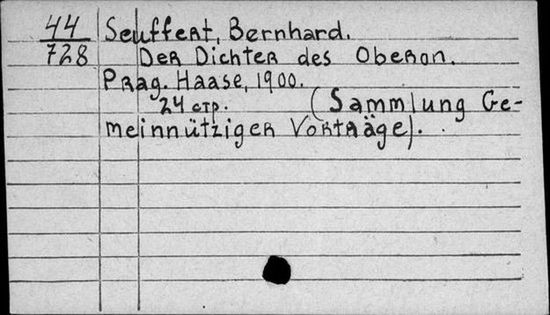 44 Seuffert, Bernhard.
728 Der Dichter des Oberon.
Prag. Haase, 1900.
24 стр. (Sammlung Ge-
meinnütziger Vorträge).